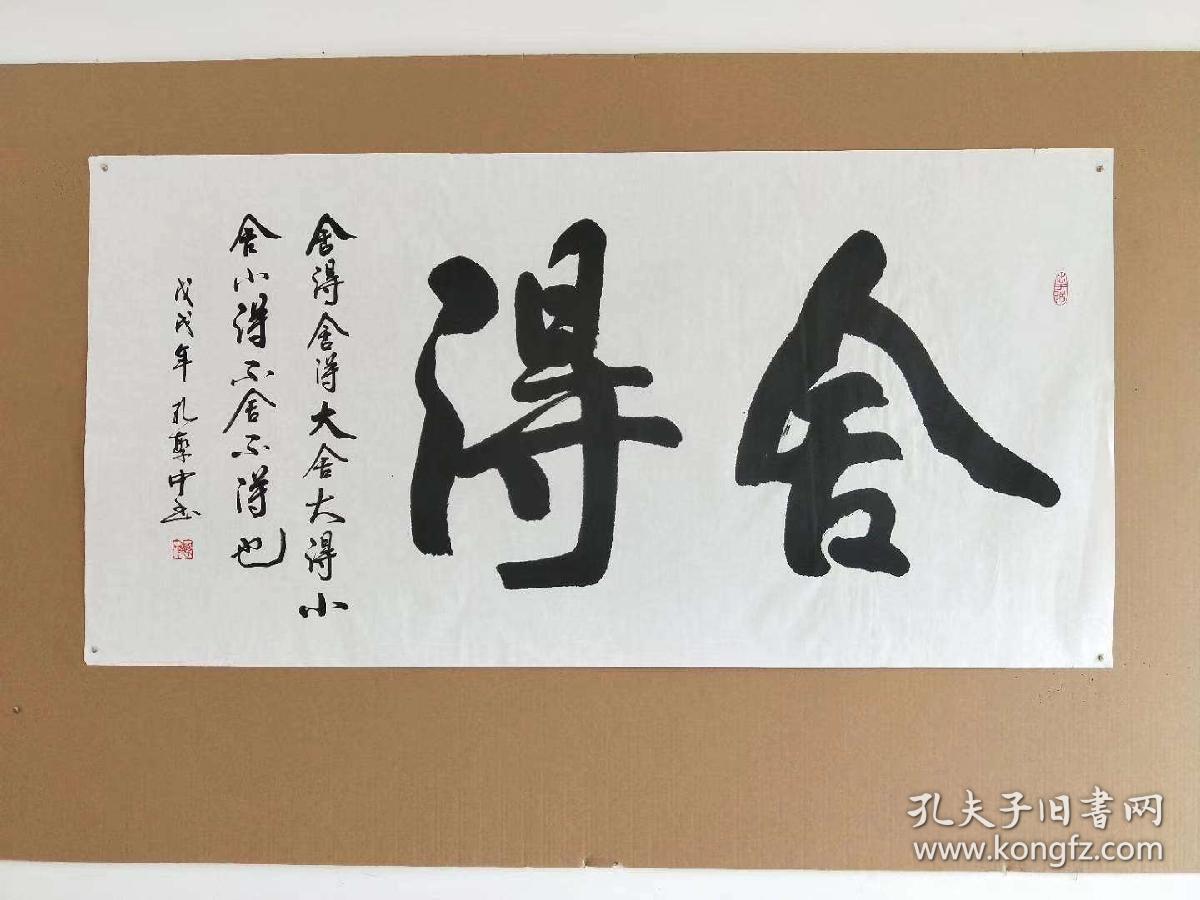 舍得
舍得舍得大舍大得小
舍小得不舍不得也
戊戌年孔中书
孔夫子旧书网
www.kongfz.com